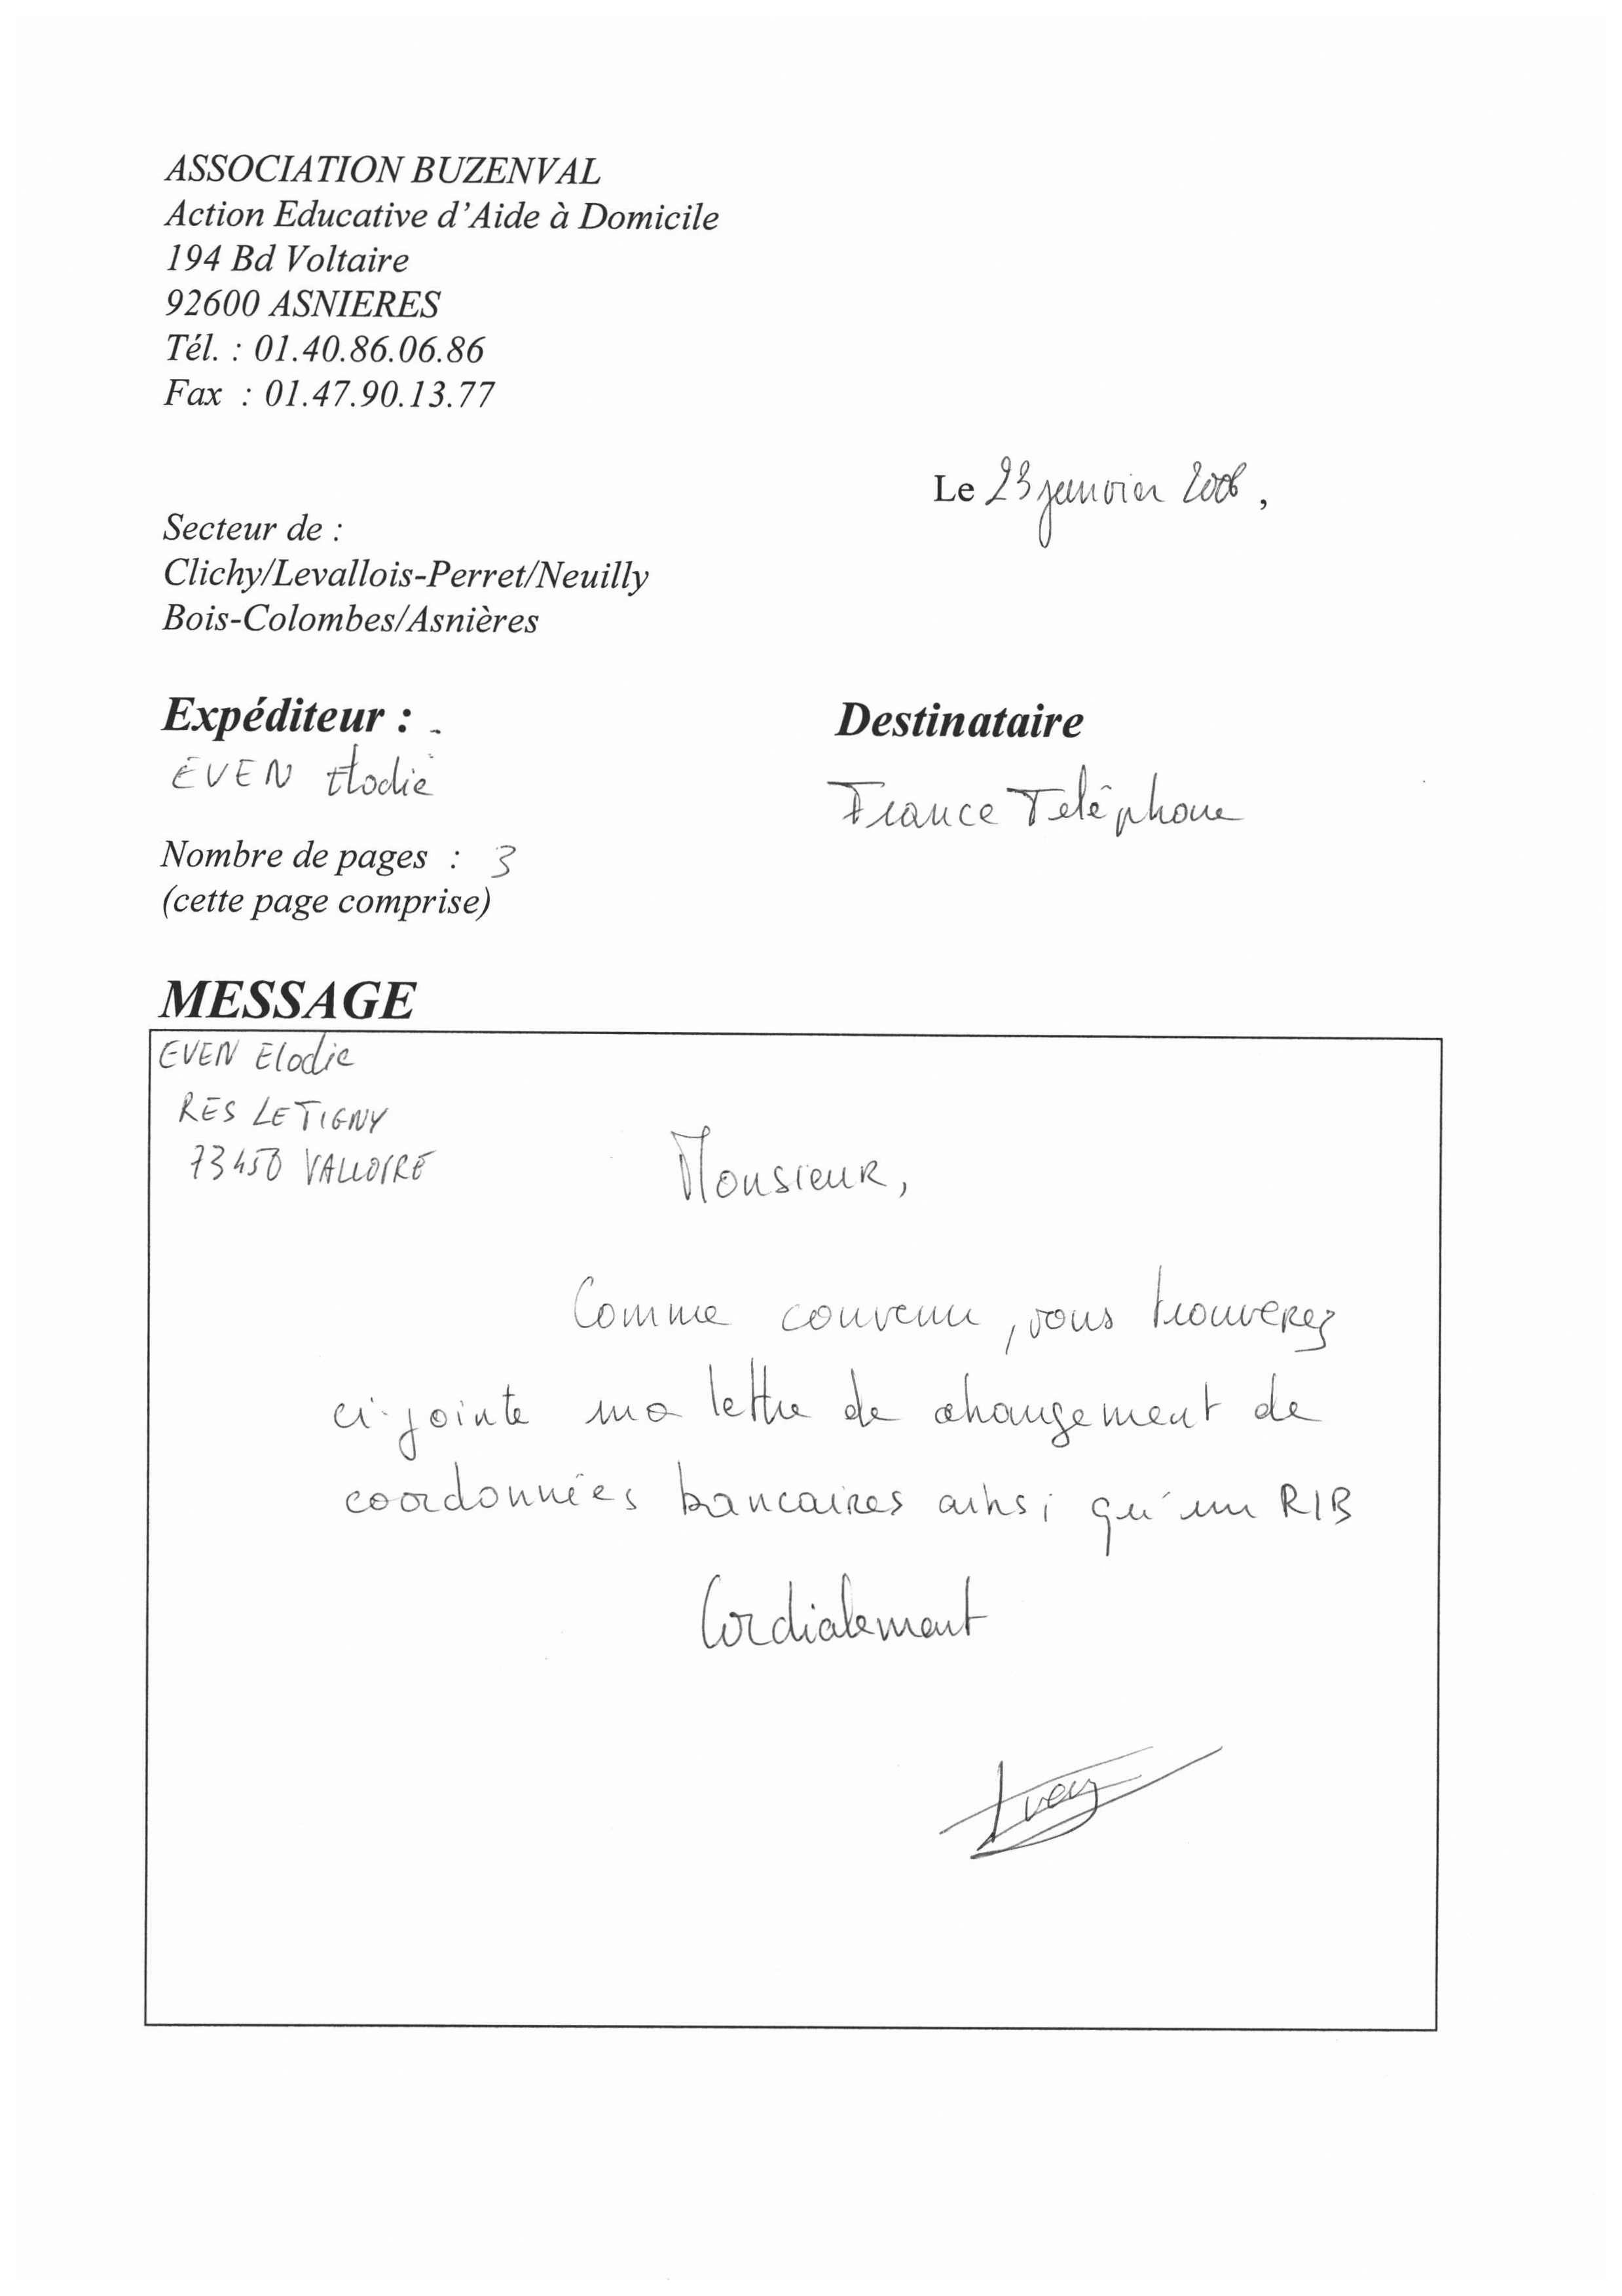 ASSOCIATION BUZENVAL
Action Educative d'Aide à Domicile
194 Bd Voltaire
92600 ASNIERES
Tél. : 01.40.86.06.86
Fax : 01.47.90.13.77
Le 23 janvier 2006,
Secteur de :
Clichy/Levallois-Perret/Neuilly
Bois-Colombes/Asnières
Expéditeur :
Destinataire
EVEN Elodie
France Téléphone
Nombre de pages : 3
(cette page comprise)
MESSAGE
EVEN Elodie
RES LE TIGNY
73450 VALLOIRE
Monsieur,
Comme convenu, vous trouverez
ci-jointe ma lettre de changement de
coordonnées bancaires ainsi qu'un RIB
Cordialement
Even